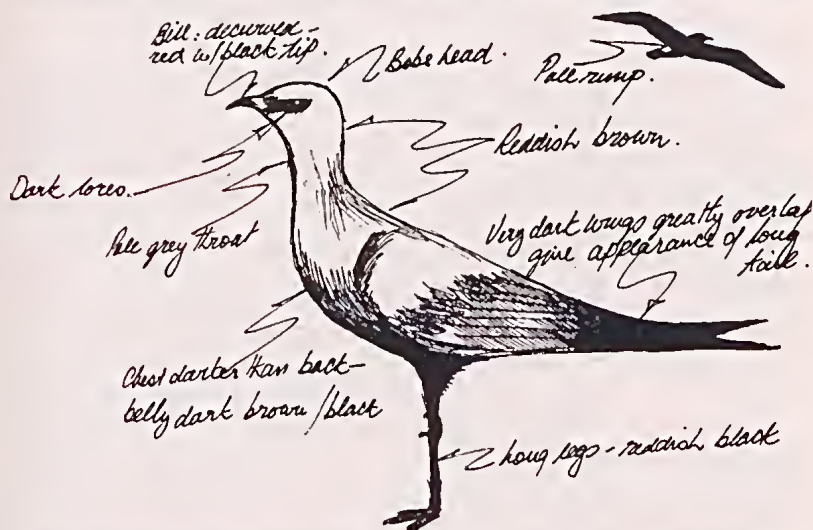 Bill: decurved -
red w/ black tip.
Babs head.
Pale rump.
Reddish brown.
Dark lores.
Pale grey throat
Very dark wings greatly overlap
give appearance of long
tail.
Chest darker than back -
belly dark brown / black
Long legs - reddish black